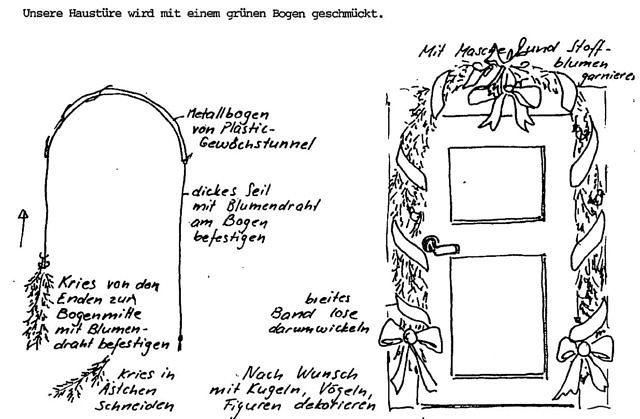 Unsere Haustüre wird mit einem grünen Bogen geschmückt.
Mit Masche und Stoff-
blumen
garnieren
Metallbogen
von Plastic-
Gewächstunnel
dickes Seil
mit Blumendraht
am Bogen
befestigen
Kries von den
Enden zur
Bogenmitte
mit Blumen-
draht befestigen
breites
Band lose
darumwickeln
Kries in
Ästchen
schneiden
Nach Wunsch
mit Kugeln, Vögeln,
Figuren dekorieren